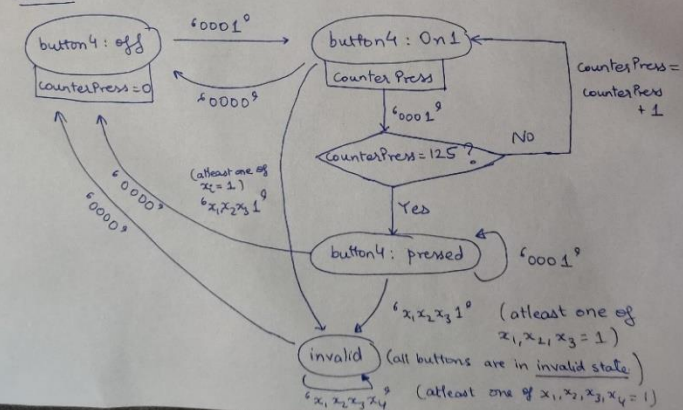 ‘0001’
button4 : off
button4 : On1
counterPress = 0
counter Press
‘0000’
counterPress =
counterPress
+ 1
‘0001’
No
counterPress = 125 ?
(atleast one of
xi = 1)
‘x₁x₂x₃1’
‘0000’
‘0000’
Yes
button4 : pressed
‘0001’
‘x₁x₂x₃1’ (atleast one of
x₁, x₂, x₃ = 1)
invalid (all buttons are in invalid state)
‘x₁x₂x₃x₄’ (atleast one of x₁, x₂, x₃, x₄ = 1)